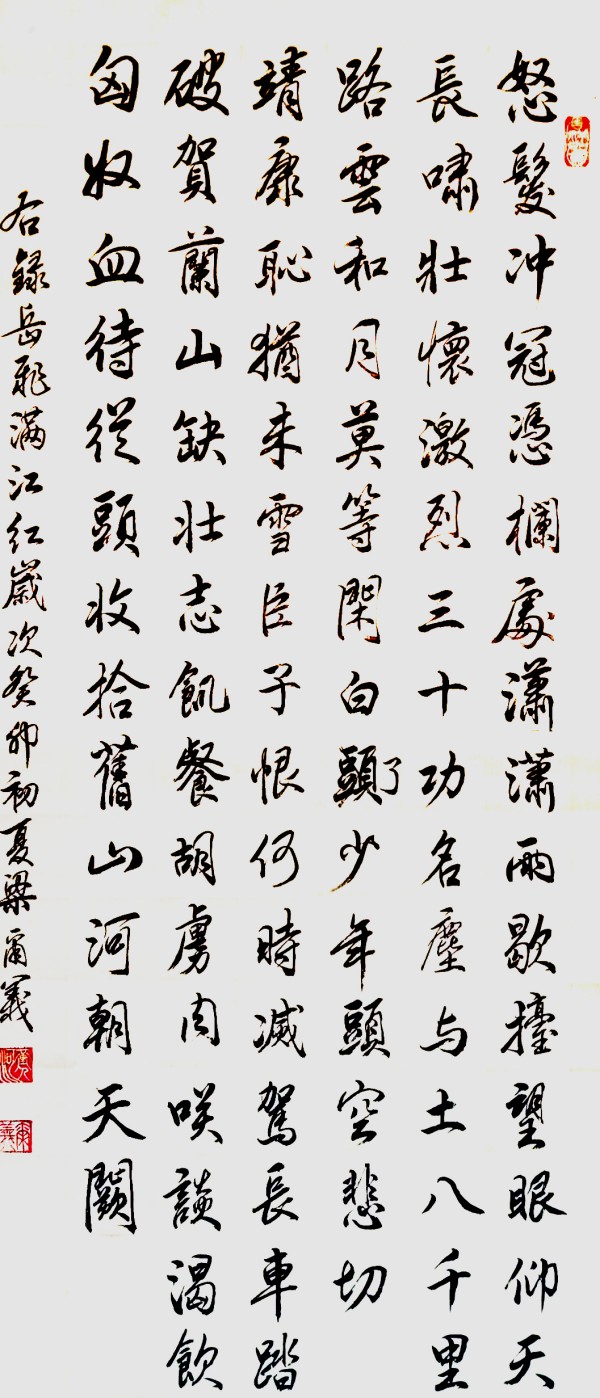 怒髮冲冠憑欄處瀟瀟雨歇擡望眼仰天
長嘯壯懷激烈三十功名塵与土八千里
路雲和月莫等閑白了頭少年頭空悲切
靖康恥猶未雪臣子恨何時滅駕長車踏
破賀蘭山缺壯志飢餐胡虜肉咲談渴飲
匈奴血待從頭收拾舊山河朝天闕
右錄岳飛滿江红歲次癸卯初夏梁爾義